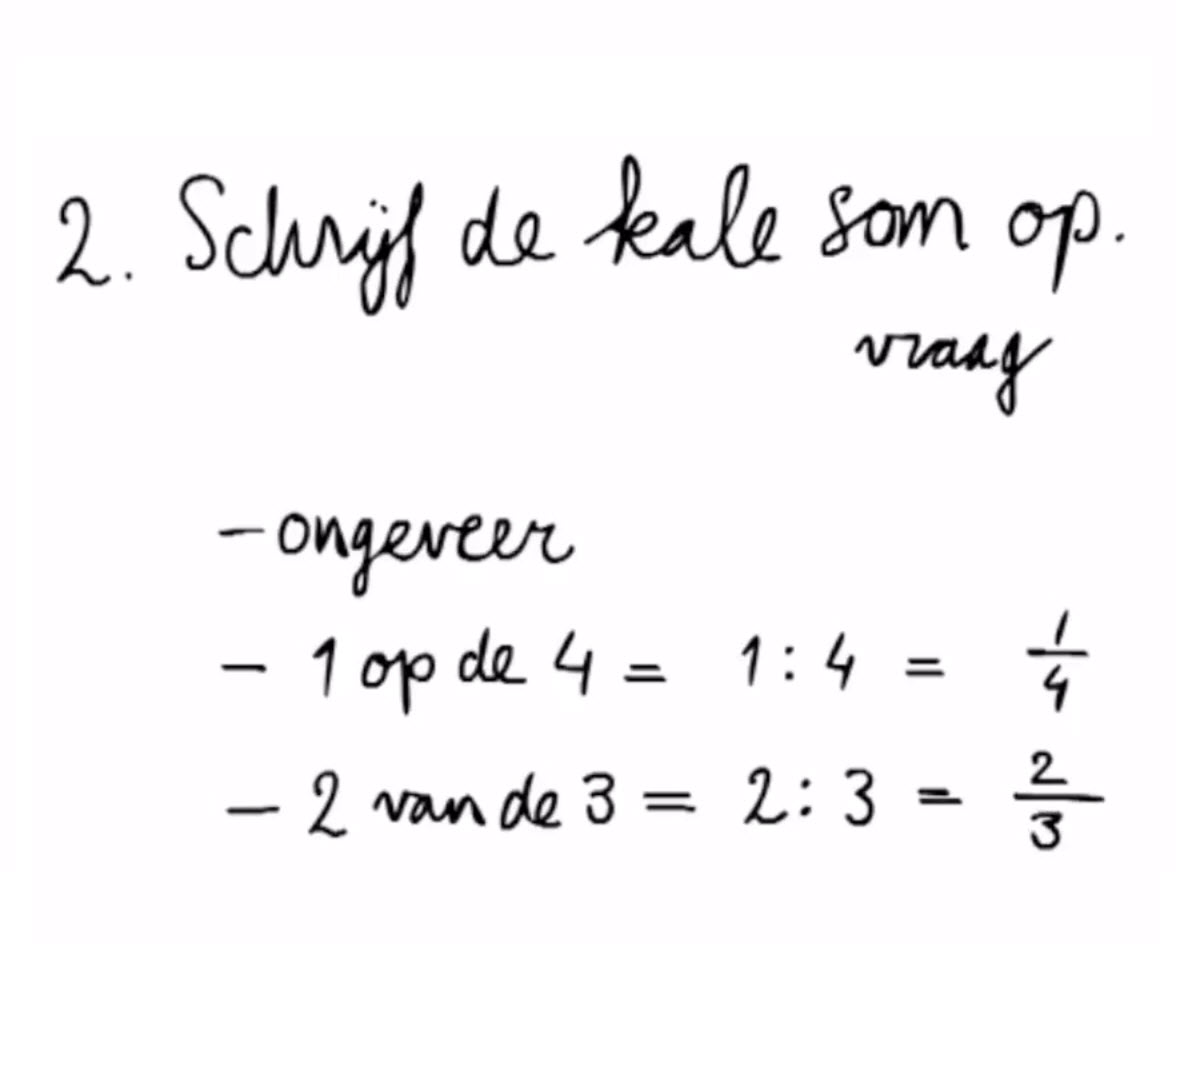 2. Schrijf de kale som op.
vraag
- ongeveer
- 1 op de 4 = 1 : 4 = 1/4
- 2 van de 3 = 2 : 3 = 2/3